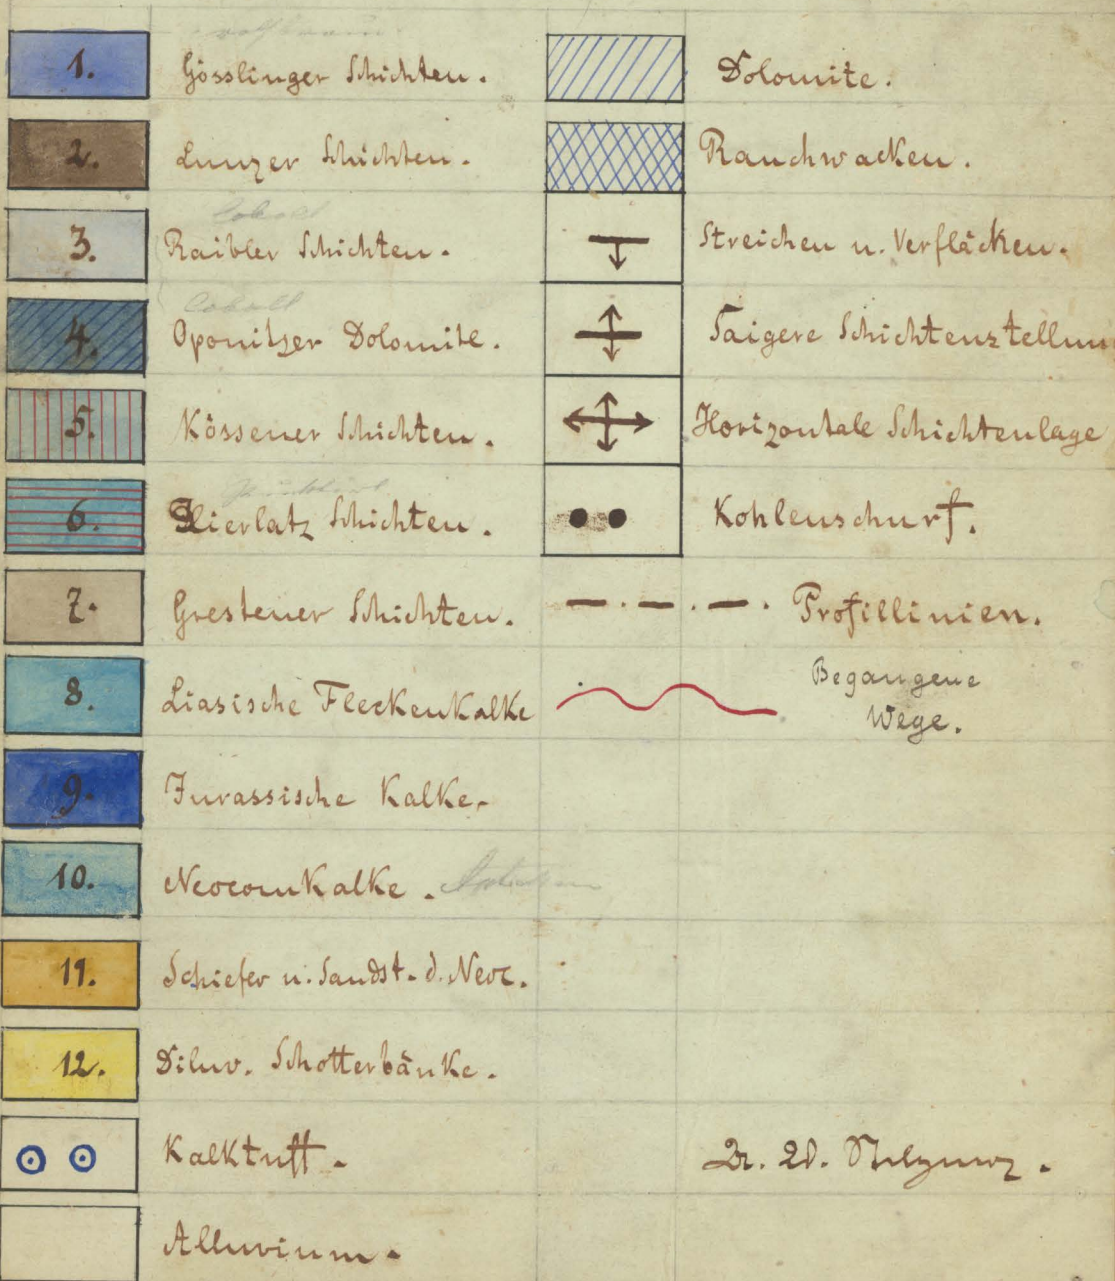 1. Gösslinger Schichten.
2. Lunzer Schichten.
Cobalt
3. Raibler Schichten.
Cobalt
4. Oponitzer Dolomite.
5. Kössener Schichten.
6. Hierlatz Schichten.
7. Grestener Schichten.
8. Liasische Fleckenkalke
9. Jurassische Kalke.
10. Neocomkalke.
11. Schiefer u. Sandst. d. Neoc.
12. Diluv. Schotterbänke.
Kalktuff.
Alluvium.
Dolomite.
Rauchwacken.
Streichen u. Verfläcken.
Saigere Schichtenstellun
Horizontale Schichtenlage
Kohlenschurf.
Profillinien.
Begangene
Wege.
Dr.